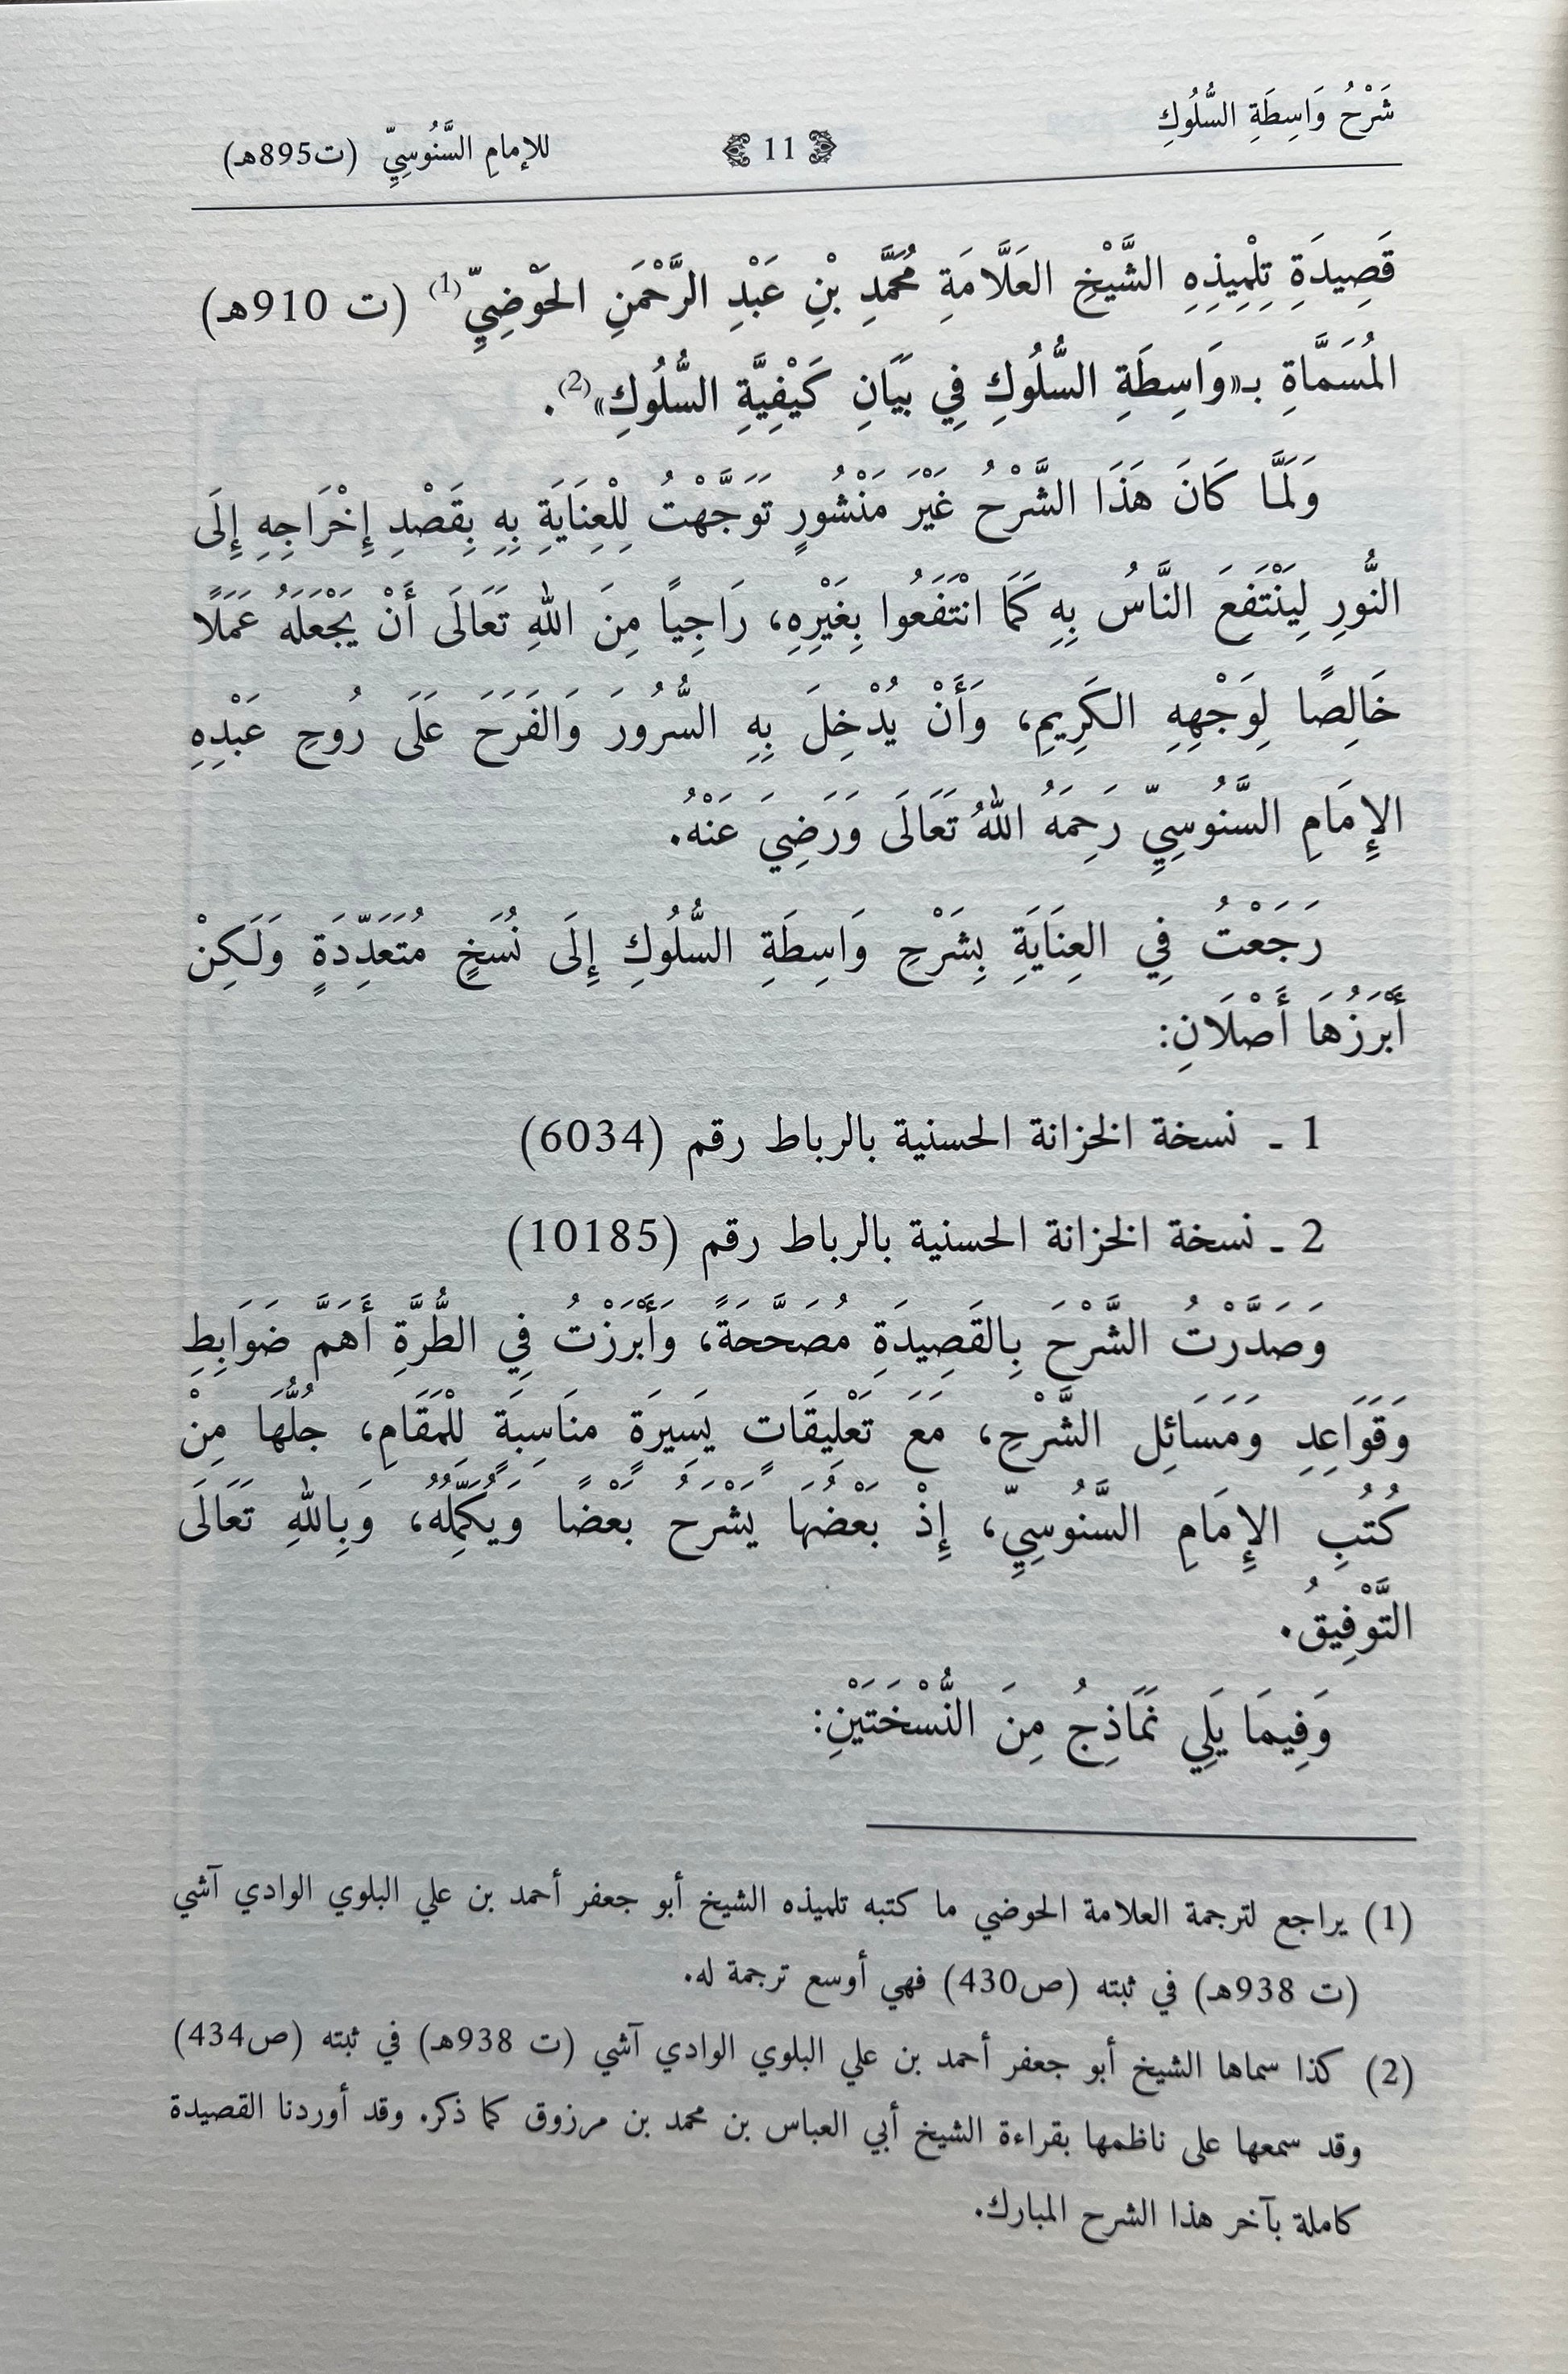 شَرْحُ وَاسِطَةِ السُّلُوكِ 11 للإمامِ السَّنُوسِيِّ (ت895هـ)
قَصِيدَةِ تِلْمِيذِهِ الشَّيْخِ العَلَّامَةِ مُحَمَّدِ بْنِ عَبْدِ الرَّحْمَنِ الحَوْضِيِّ(1) (ت 910هـ)
المُسَمَّاةِ بـ«وَاسِطَةِ السُّلُوكِ فِي بَيَانِ كَيْفِيَّةِ السُّلُوكِ»(2).
وَلَمَّا كَانَ هَذَا الشَّرْحُ غَيْرَ مَنْشُورٍ تَوَجَّهْتُ لِلْعِنَايَةِ بِهِ بِقَصْدِ إِخْرَاجِهِ إِلَى
النُّورِ لِيَنْتَفِعَ النَّاسُ بِهِ كَمَا انْتَفَعُوا بِغَيْرِهِ، رَاجِيًا مِنَ اللهِ تَعَالَى أَنْ يَجْعَلَهُ عَمَلًا
خَالِصًا لِوَجْهِهِ الكَرِيمِ، وَأَنْ يُدْخِلَ بِهِ السُّرُورَ وَالفَرَحَ عَلَى رُوحِ عَبْدِهِ
الإِمَامِ السَّنُوسِيِّ رَحِمَهُ اللهُ تَعَالَى وَرَضِيَ عَنْهُ.
رَجَعْتُ فِي العِنَايَةِ بِشَرْحِ وَاسِطَةِ السُّلُوكِ إِلَى نُسَخٍ مُتَعَدِّدَةٍ وَلَكِنْ
أَبْرَزُهَا أَصْلَانِ:
1 ـ نسخة الخزانة الحسنية بالرباط رقم (6034)
2 ـ نسخة الخزانة الحسنية بالرباط رقم (10185)
وَصَدَّرْتُ الشَّرْحَ بِالقَصِيدَةِ مُصَحَّحَةً، وَأَبْرَزْتُ فِي الطُّرَّةِ أَهَمَّ ضَوَابِطِ
وَقَوَاعِدِ وَمَسَائِلِ الشَّرْحِ، مَعَ تَعْلِيقَاتٍ يَسِيرَةٍ مناَسِبَةٍ لِلْمَقَامِ، جُلُّهَا مِنْ
كُتُبِ الإِمَامِ السَّنُوسِيِّ، إِذْ بَعْضُهَا يَشْرَحُ بَعْضًا وَيُكَمِّلُهُ، وَبِاللهِ تَعَالَى
التَّوْفِيقُ.
وَفِيمَا يَلِي نَمَاذِجُ مِنَ النُّسْخَتَيْنِ:
(1) يراجع لترجمة العلامة الحوضي ما كتبه تلميذه الشيخ أبو جعفر أحمد بن علي البلوي الوادي آشي
(ت 938هـ) في ثبته (ص430) فهي أوسع ترجمة له.
(2) كذا سماها الشيخ أبو جعفر أحمد بن علي البلوي الوادي آشي (ت 938هـ) في ثبته (ص434)
وقد سمعها على ناظمها بقراءة الشيخ أبي العباس بن محمد بن مرزوق كما ذكر. وقد أوردنا القصيدة
كاملة بآخر هذا الشرح المبارك.